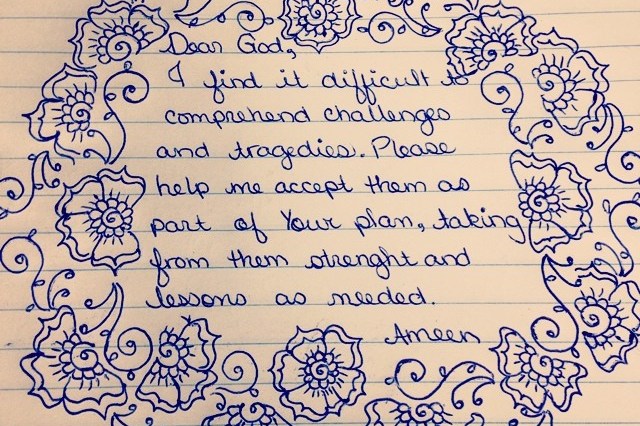 Dear God,
I find it difficult to
comprehend challenges
and tragedies. Please
help me accept them as
part of Your plan, taking
from them strenght and
lessons as needed.
Ameen